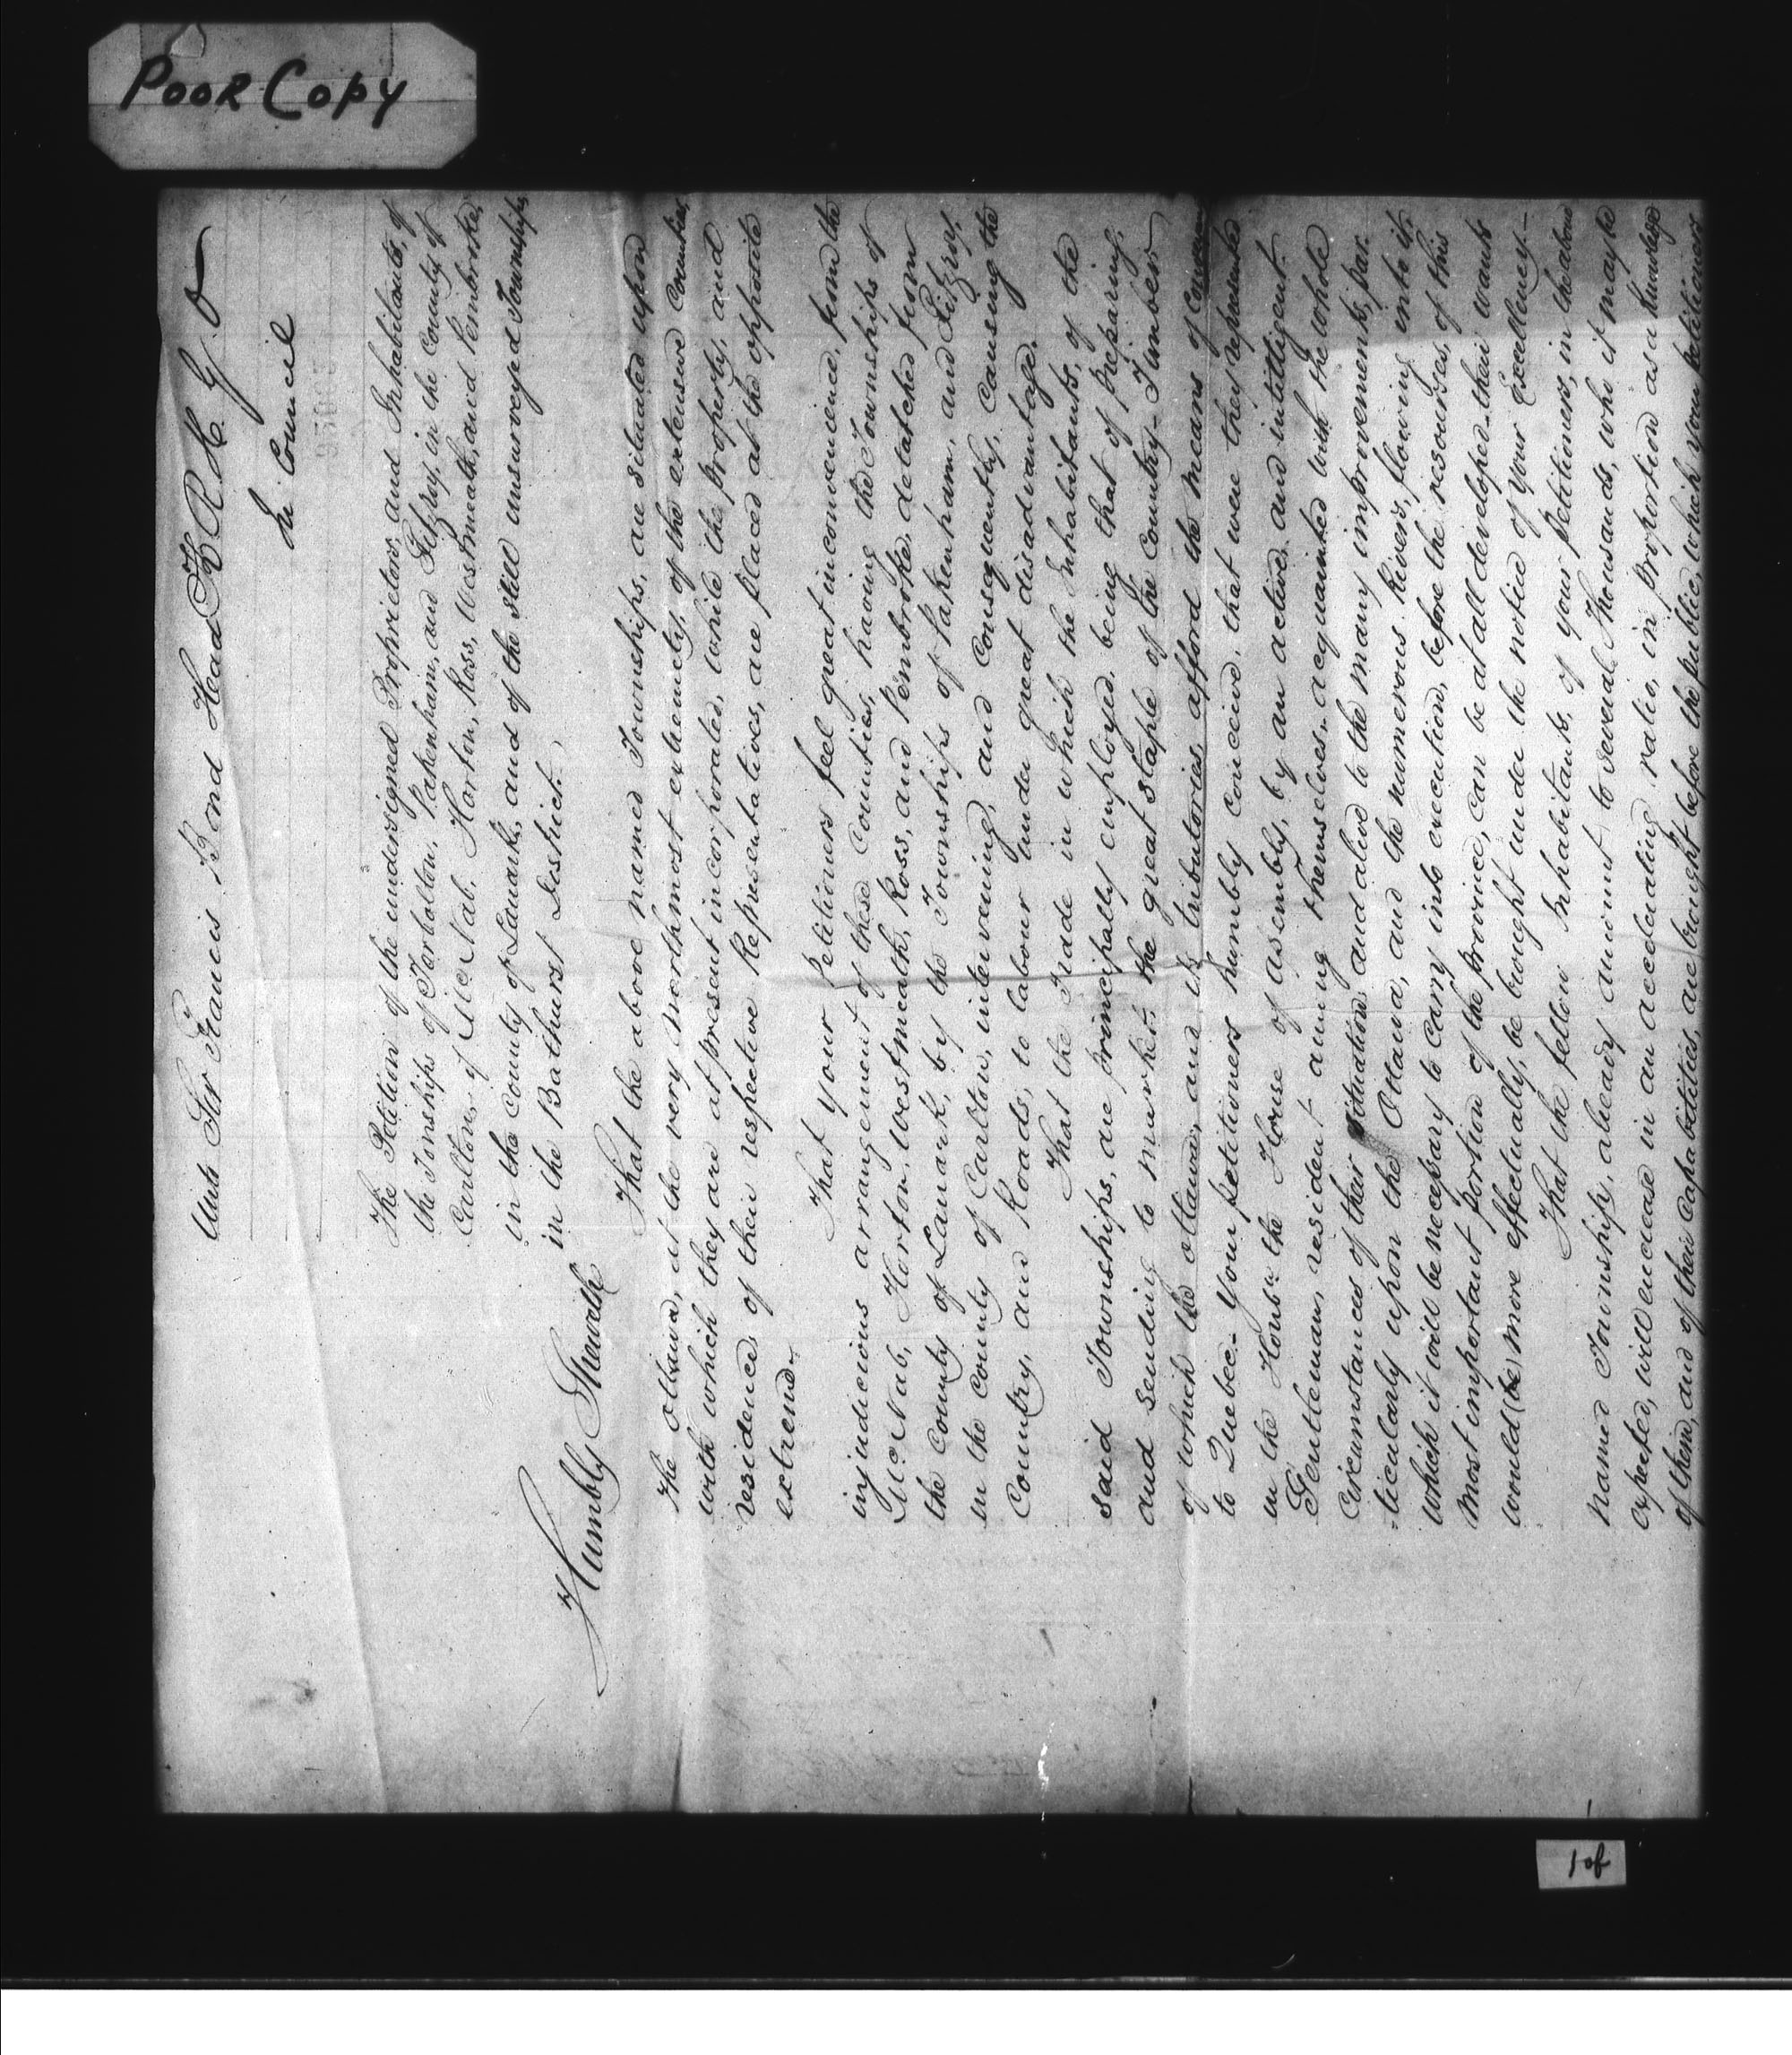 Poor Copy
Unto Sir Francis Bond Head K.R.C. G O
In Council
The Petition of the undersigned Proprietors, and Inhabitants, of
the Tonships of Torbolton, Pakenham, and Fitzroy, in the County of
Carlton, of McNab, Horton, Ross, Westmeath, and Pembroke,
in the County of Lanark, and of the still unsurveyed Townships
in the Bathurst District.
Humbly Sheweth
That the above named Townships, are situated upon
the Ottawa, at the very northmost extremity, of the extensive Counties
with which they are at present incorporated, while the property, and
residence, of their respective Representatives, are placed at the opposite
extreme.
That your Petitioners feel great inconvenience, from the
injudicious arrangement of these Counties, having the Townships of
McNab, Horton, Westmeath, Ross, and Pembroke, detatched from
the County of Lanark, by the Townships of Pakenham, and Fitzroy,
in the County of Carlton, intervening, and consequently, causing the
Country, and Roads, to labour under great disadvantage.
That the Trade in which the Inhabitants, of the
said Townships, are principally employed, being that of preparing,
and sending to market, the great staple of the Country - Timber
of which the Ottawa, and its tributories, afford the means of
to Quebec - Your petitioners humbly conceive, that were they represented
in the Honble the House of Assembly, by an active, and intilligent
Gentleman, resident among themselves, acquainted with the whole
circumstances of their situation, and alive to the many improvements, par
-ticularly upon the Ottawa, and the numerous Rivers, flowing into it,
which it will be necessary to carry into execution, before the resourses, of this
most important portion of the Province, can be at all developed - their wants
would (be) more effectually, be brought under the notice of your Excellency -
That the fellow Inhabitants, of your petitioners, in the above
named Townships, already amount to several Thousands, who it may be
expected, will encrease in an accelerating ratio, in proportion as a knowledge
of them, and of their capabilities, are brought before the public, which your petitioners
1 of